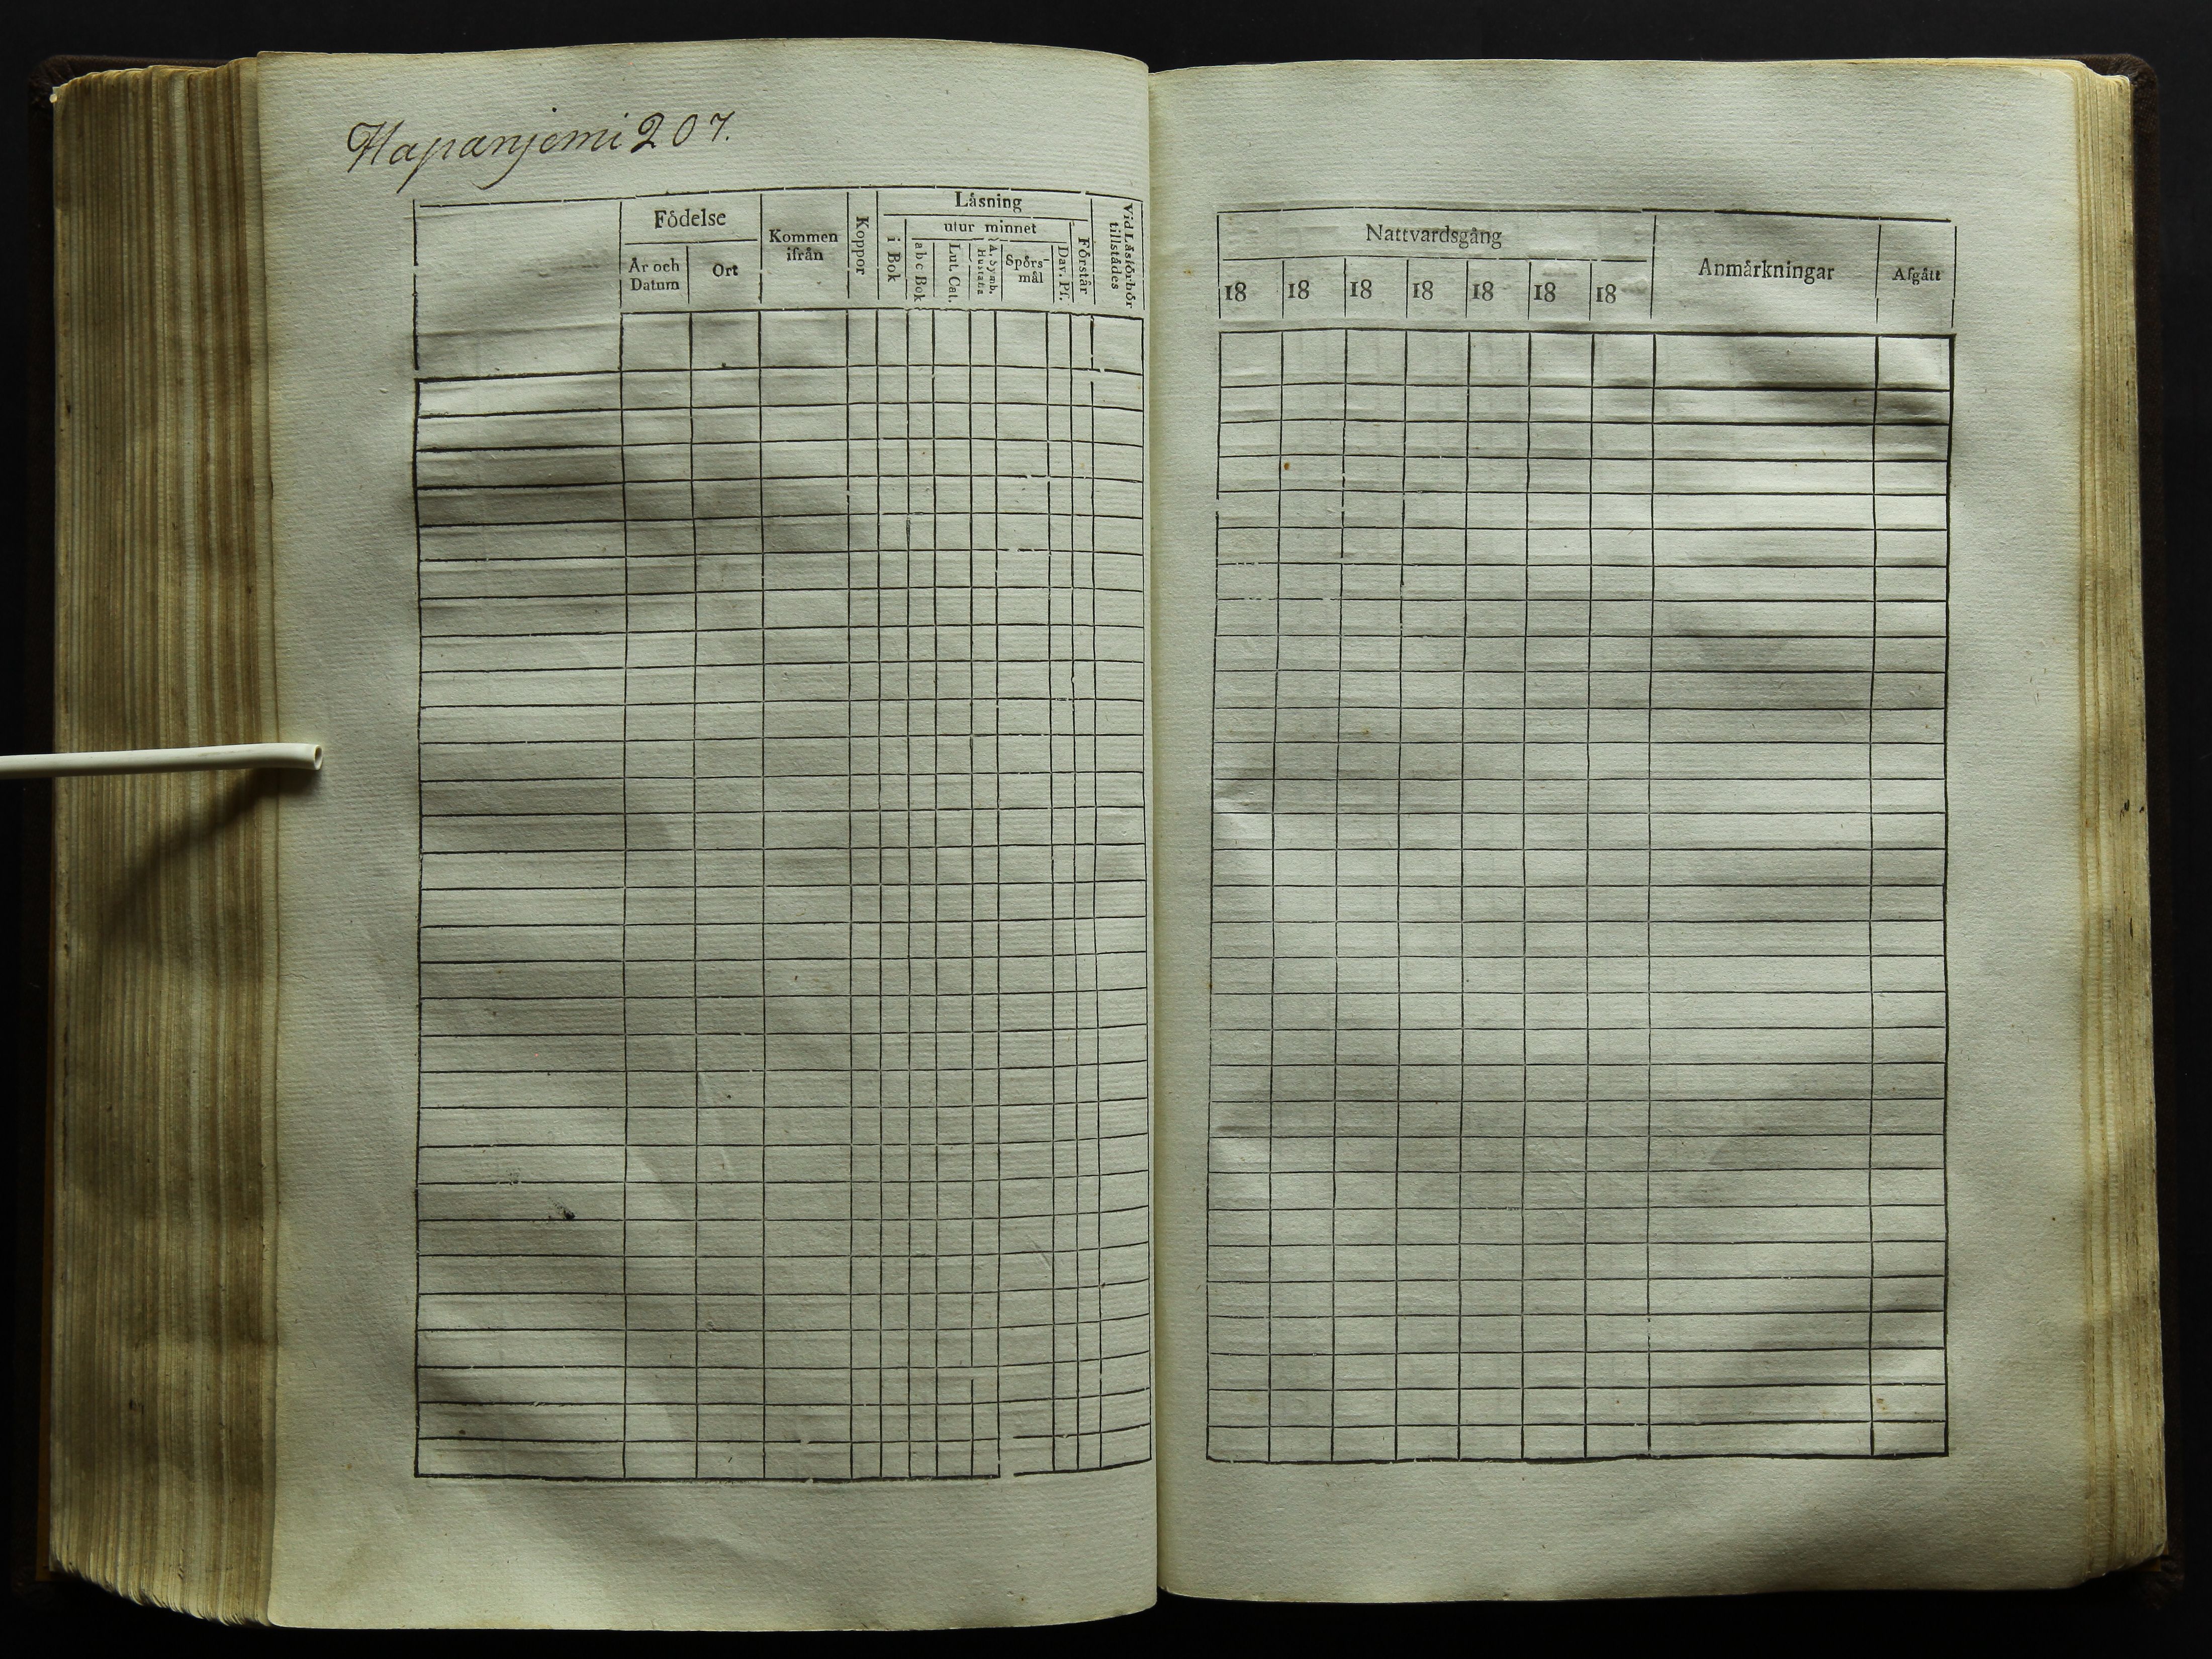 Hapanjemi 207.
Läsning
Födelse
utur minnet
Kommen ifrån
Koppor
i Bok
a b c Bok
Lut. Cat.
A. Symb. Hustafla
Spörs-
mål
Dav. Ps.
Förstår
Vid Läsförhör tillstädes
År och
Datum
Ort
Nattvardsgång
Anmärkningar
Afgått
18 18 18 18 18 18 18